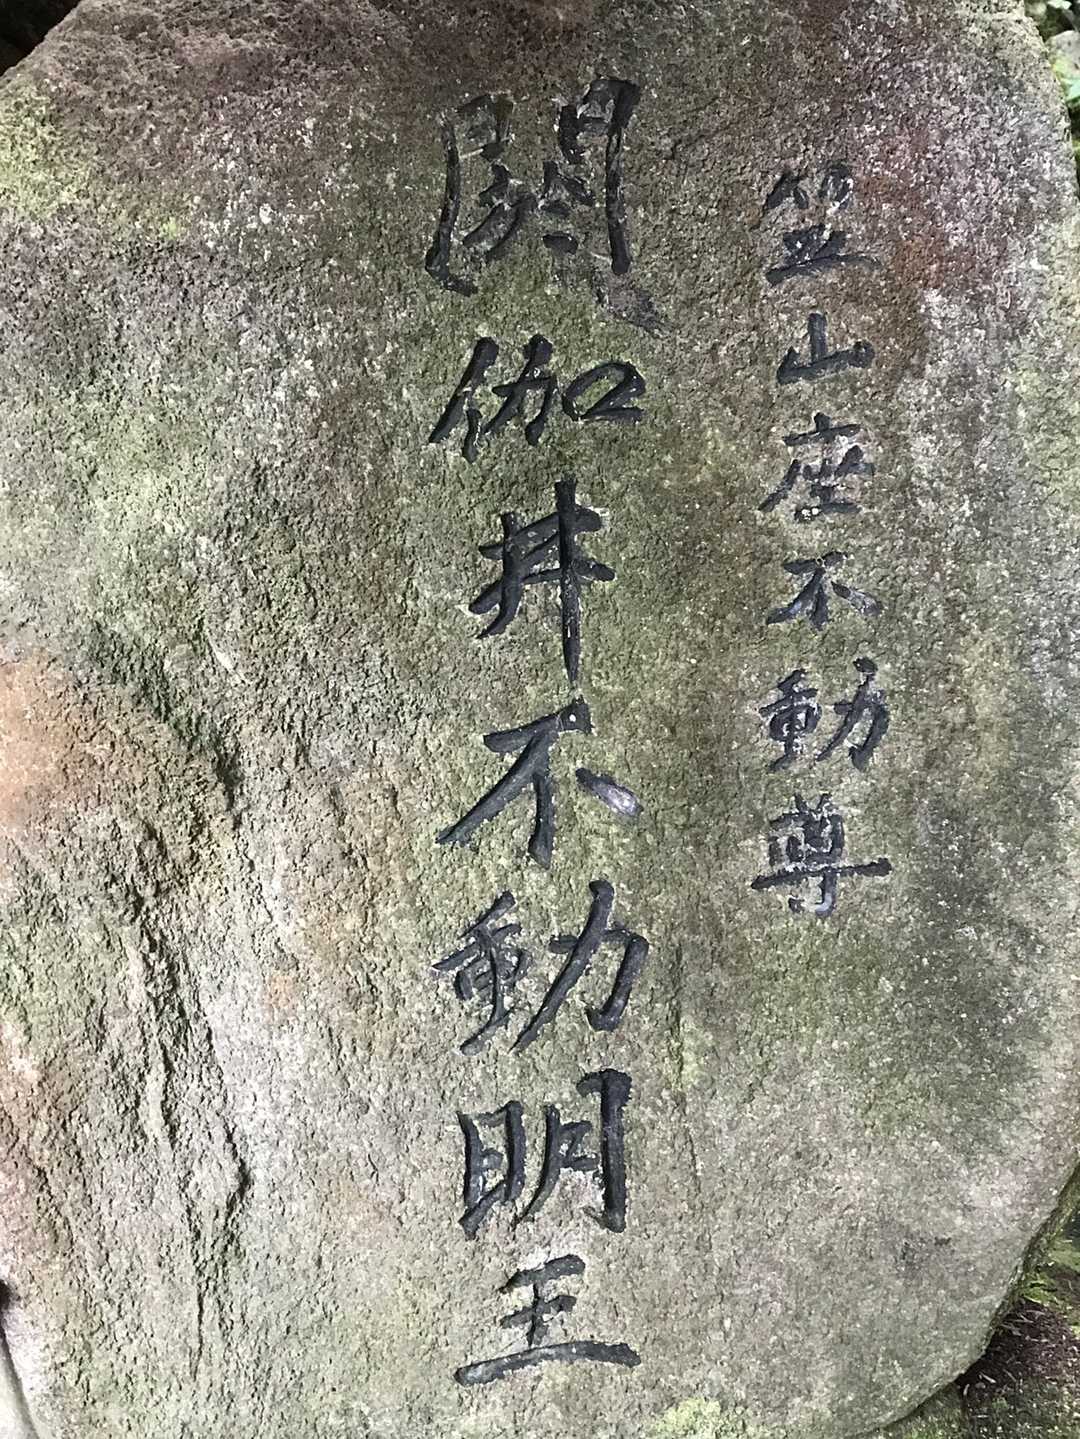 笠山座不動尊
閼伽井不動明王